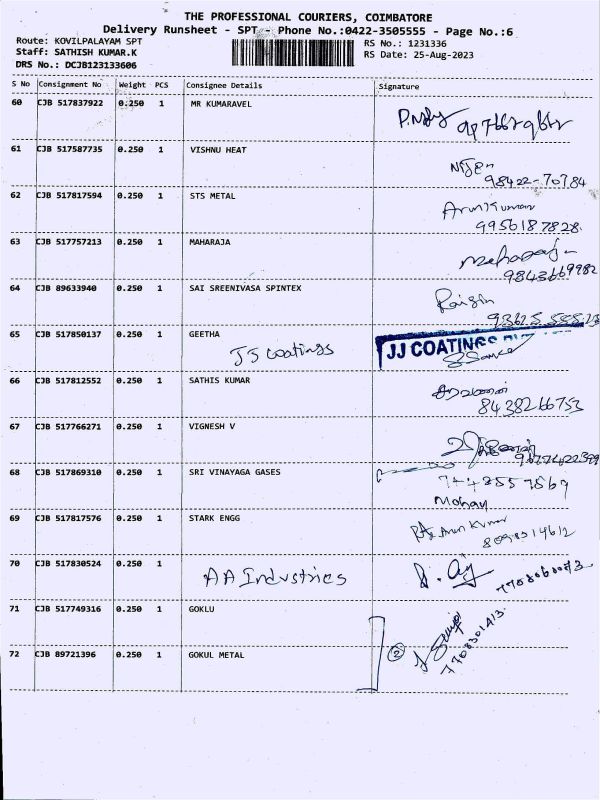 THE PROFESSIONAL COURIERS, COIMBATORE
Delivery Runsheet - SPT - Phone No.:0422-3505555 - Page No.:6
Route: KOVILPALAYAM SPT
RS No.: 1231336
Staff: SATHISH KUMAR.K
RS Date: 25-Aug-2023
DRS No.: DCJB123133606
S No Consignment No Weight PCS Consignee Details Signature
60 CJB 517837922 0.250 1 MR KUMARAVEL
61 CJB 517587735 0.250 1 VISHNU HEAT
98422-70784
62 CJB 517817594 0.250 1 STS METAL Arun Kumar
9956187828.
63 CJB 517757213 0.250 1 MAHARAJA
9843669982
64 CJB 89633940 0.250 1 SAI SREENIVASA SPINTEX
65 CJB 517850137 0.250 1 GEETHA
JJ Coatings JJ COATINGS
66 CJB 517812552 0.250 1 SATHIS KUMAR சரவணன்
8438266753
67 CJB 517766271 0.250 1 VIGNESH V
68 CJB 517869310 0.250 1 SRI VINAYAGA GASES
Mohan
69 CJB 517817576 0.250 1 STARK ENGG Arun Kumar
8098314612
70 CJB 517830524 0.250 1
AA Industries 7708060073.
71 CJB 517749316 0.250 1 GOKLU
72 CJB 89721396 0.250 1 GOKUL METAL 2
7708301413.